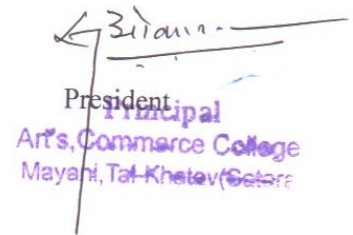 President
Principal
Art's, Commerce College
Mayani, Tal-Khatav (Satara